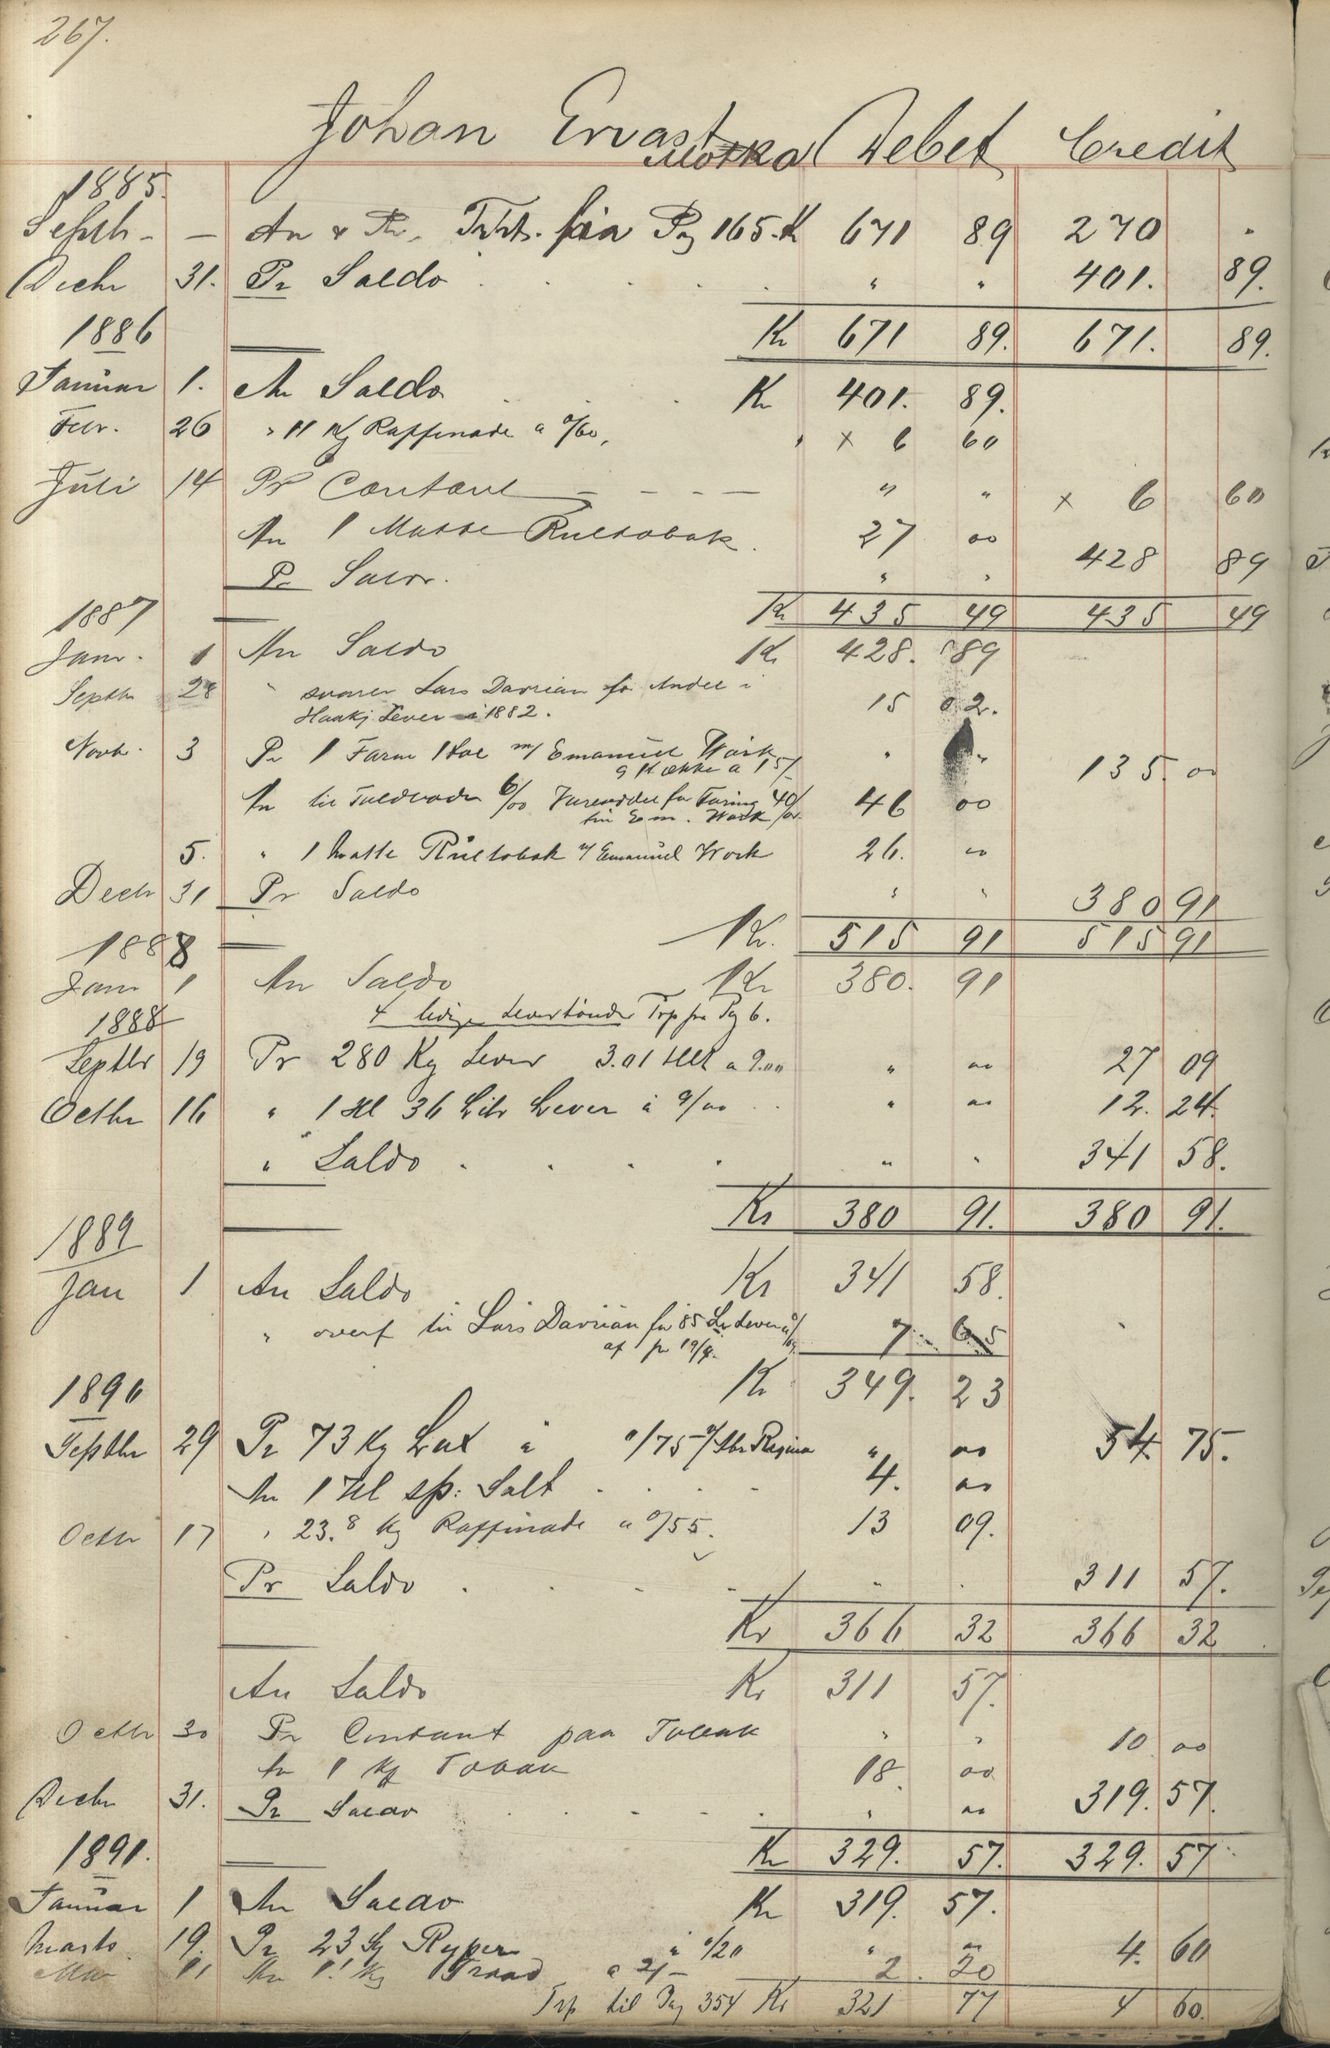 267.
Johan Ervast Debet Credit
Motka
1885.
Septb - — An & Pr. Trpt. fra Pag 165. Kr 671 89 270 "
Decbr 31. Pr Saldo . . . . " " 401. 89.
1886 Kr 671 89. 671. 89.
Januar 1. An Saldo . . . Kr 401. 89.
Febr. 26 " 11 Kg Raffinade a 0/60, " x 6 60
Juli 14 Pr Contant — — — — " " x 6 60
An 1 Matte Rultobak. 27 00
Pr Saldo. " " 428 89
1887 Kr 435 49 435 49
Janr. 1 An Saldo Kr 428. 89
Septbr 28 " svarer Lars Davrian for Andel i
Haakj. Lever i 1882. 15 02.
Novb. 3 Pr 1 Farm m/ Emanuel Wark " " 135. 00
9 Kække a 15/-
An til 6/00 for 40/00 46 00
Em. Wark
5. " 1 Matte Rultobak v/ Emanuel Work 26. 00
Decbr 31 Pr Saldo " " 380 91
1888 Kr. 515 91 515 91
Janr 1 An Saldo Kr 380. 91
4 ledige Levertønder Trp fra Pag 6.
1888
Septbr 19 Pr 280 Kg Lever 3.01 Hlt a 9.00 " 00 27 09
Octbr 16 " 1 Hl 36 Litr Lever a 9/00 . . " 00 12. 24.
" Saldo . . . . " " 341 58.
Kr 380 91. 380 91.
1889
Jan 1 An Saldo . Kr 341 58.
" overf til Lars Davrian for 85 Ltr Lever a 9/
af fr 19/9. 7 65
1890 Kr 349. 23
Septbr 29 Pr 73 Kg Lax a 0/75 Regina " 00 54 75.
An 1 Hl sp: Salt . . . . 4. 00
Octbr 17 " 23.8 Kg Raffinade a 0/55. 13 09.
Pr Saldo . . . . " " 311 57.
Kr 366 32 366 32
An Saldo Kr 311 57.
Octbr 30 Pr Contant paa Tobak " " 10 00
An 1 Kg Tobak 18. 00
Decbr 31. Pr Saldo . . . . " 00 319. 57.
1891. Kr 329. 57. 329. 57
Januar 1 An Saldo Kr 319. 57.
Marts 19. Pr 23 St Ryper a 0/20 " 00 4. 60
Mai 11 An 1.1 Kg Traad a 2/- 2. 20
Trp til Pag 354 Kr 321 77 4 60.